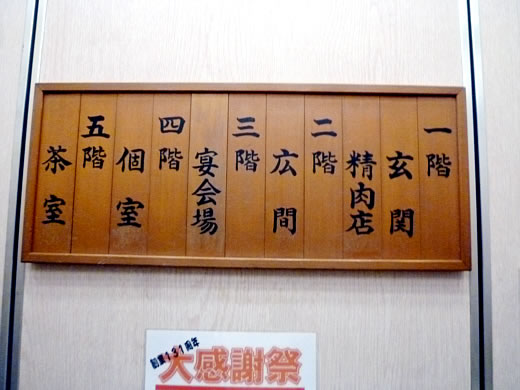 一階
玄関
精肉店
二階
広間
三階
宴会場
四階
個室
五階
茶室
創業131周年
大感謝祭